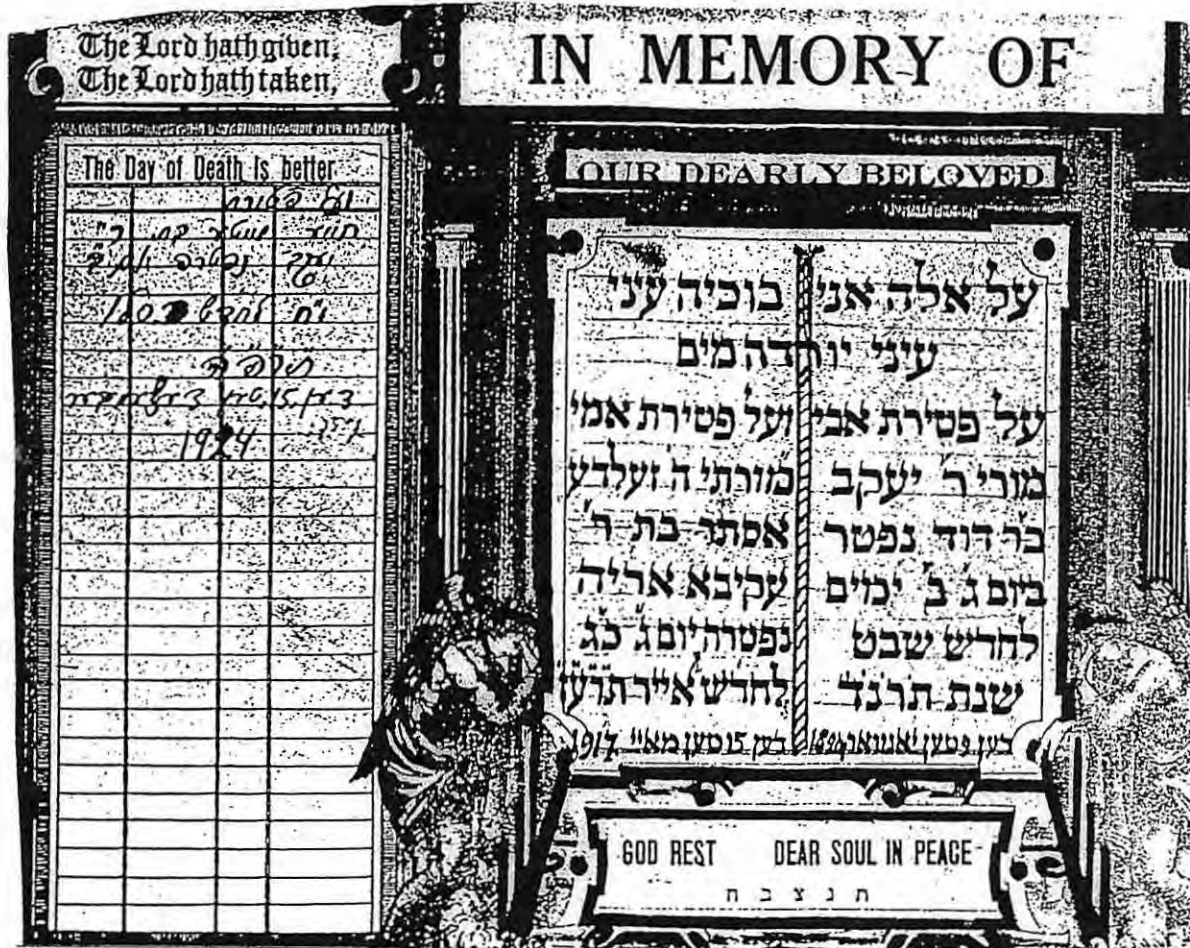 The Lord hath given,
The Lord hath taken,
IN MEMORY OF
The Day of Death Is better
תרפ"ה
1924
OUR DEARLY BELOVED
על אלה אני בוכיה עני
עיני יורדה מים
על פטירת אבי
מורי ר' יעקב
ב"ר דוד נפטר
ביום ג' ב' ימים
לחדש שבט
שנת תרנד
דען 9טען יאנואר 1894
ועל פטירת אמי
מורתי ה' זעלדע
אסתר בת ר'
עקיבא אריה
נפטרה יום ג' כג
לחדש אייר תרען
דען 15טען מאיי 1917
GOD REST DEAR SOUL IN PEACE
ת נ צ ב ה